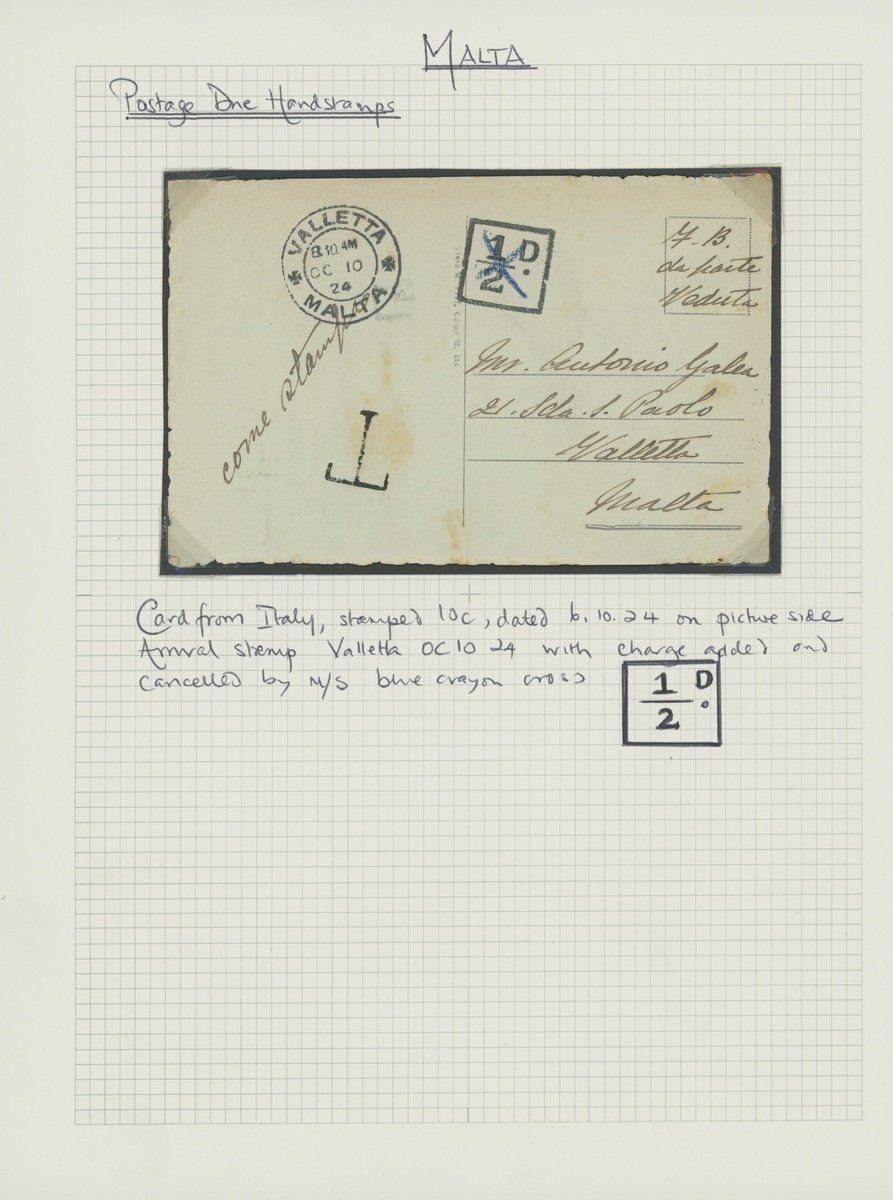 MALTA
Postage Due Handstamps
VALLETTA
8.30 AM
OC 10
24
MALTA
1/2 D.
F. B.
da parte
Veduta
come stampe
T
Mr. Antonio Galea
21. Sda. S. Paolo
Valletta
Malta
Card from Italy, stamped 10c, dated 6.10.24 on picture side
Arrival stamp Valletta OC 10 24 with charge added and
cancelled by M/S blue crayon cross
1/2 D.